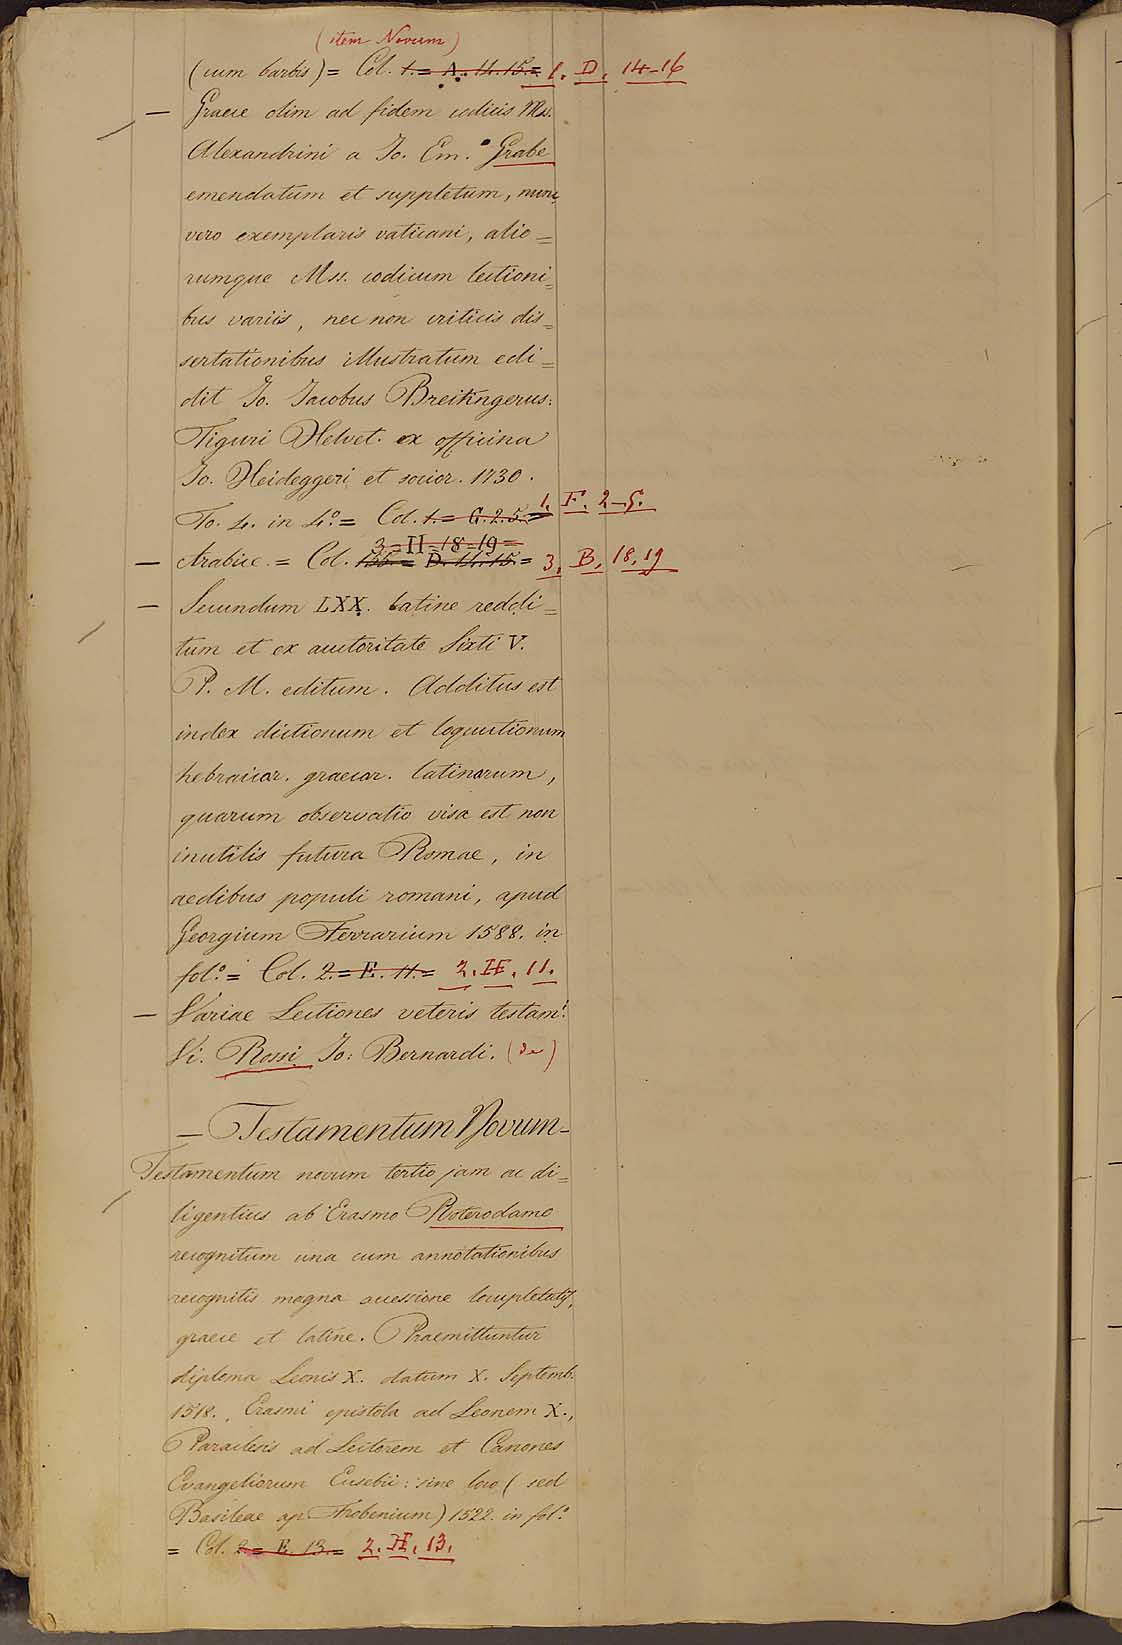 (item Novum)
(cum barbis) = Col. 1. = A. 14. 15. = 1. D. 14-16
— Graece olim ad fidem codicis Mss.
Alexandrini a Jo. Em. Grabe
emendatum et suppletum, nunc
vero exemplaris vaticani, alio=
rumque Mss. codicum lectioni=
bus variis, nec non criticis dis=
sertationibus illustratum edi=
dit Jo. Jacobus Breitingerus:
Tiguri Helvet. ex officina
Jo. Heideggeri et socior. 1730.
To. 4. in 4.º = Col. 1. = G. 2. 5. = 1. F. 2-5.
3 = H = 18 = 19 =
— Arabice. = Col. 155. = D. 14. 15. = 3. B. 18. 19
— Secundum LXX. latine reddi=
tum et ex auctoritate Sixti V.
P. M. editum. Additus est
index dictionum et loquutionum
hebraicar. graecar. latinarum,
quarum observatio visa est non
inutilis futura Romae, in
aedibus populi romani, apud
Georgium Ferrarium 1588. in
fol.º = Col. 2. = E. 11. = 2. H. 11.
— Variae Lectiones veteris testam.i
Vi. Rossi Jo: Bernardi. (de)
— Testamentum Novum —
Testamentum novum tertio jam ac di=
ligentius ab Erasmo Roterodamo
recognitum una cum annotationibus
recognitis magna accessione locupletatis,
graece et latine. Praemittuntur
diploma Leonis X. datum X. Septemb.
1518., Erasmi epistola ad Leonem X.,
Paraclesis ad Lectorem et Canones
Evangeliorum Eusebii: sine loco (sed
Basileae ap. Frobenium) 1522. in fol.º
= Col. 2. = E. 13. = 2. H. 13.